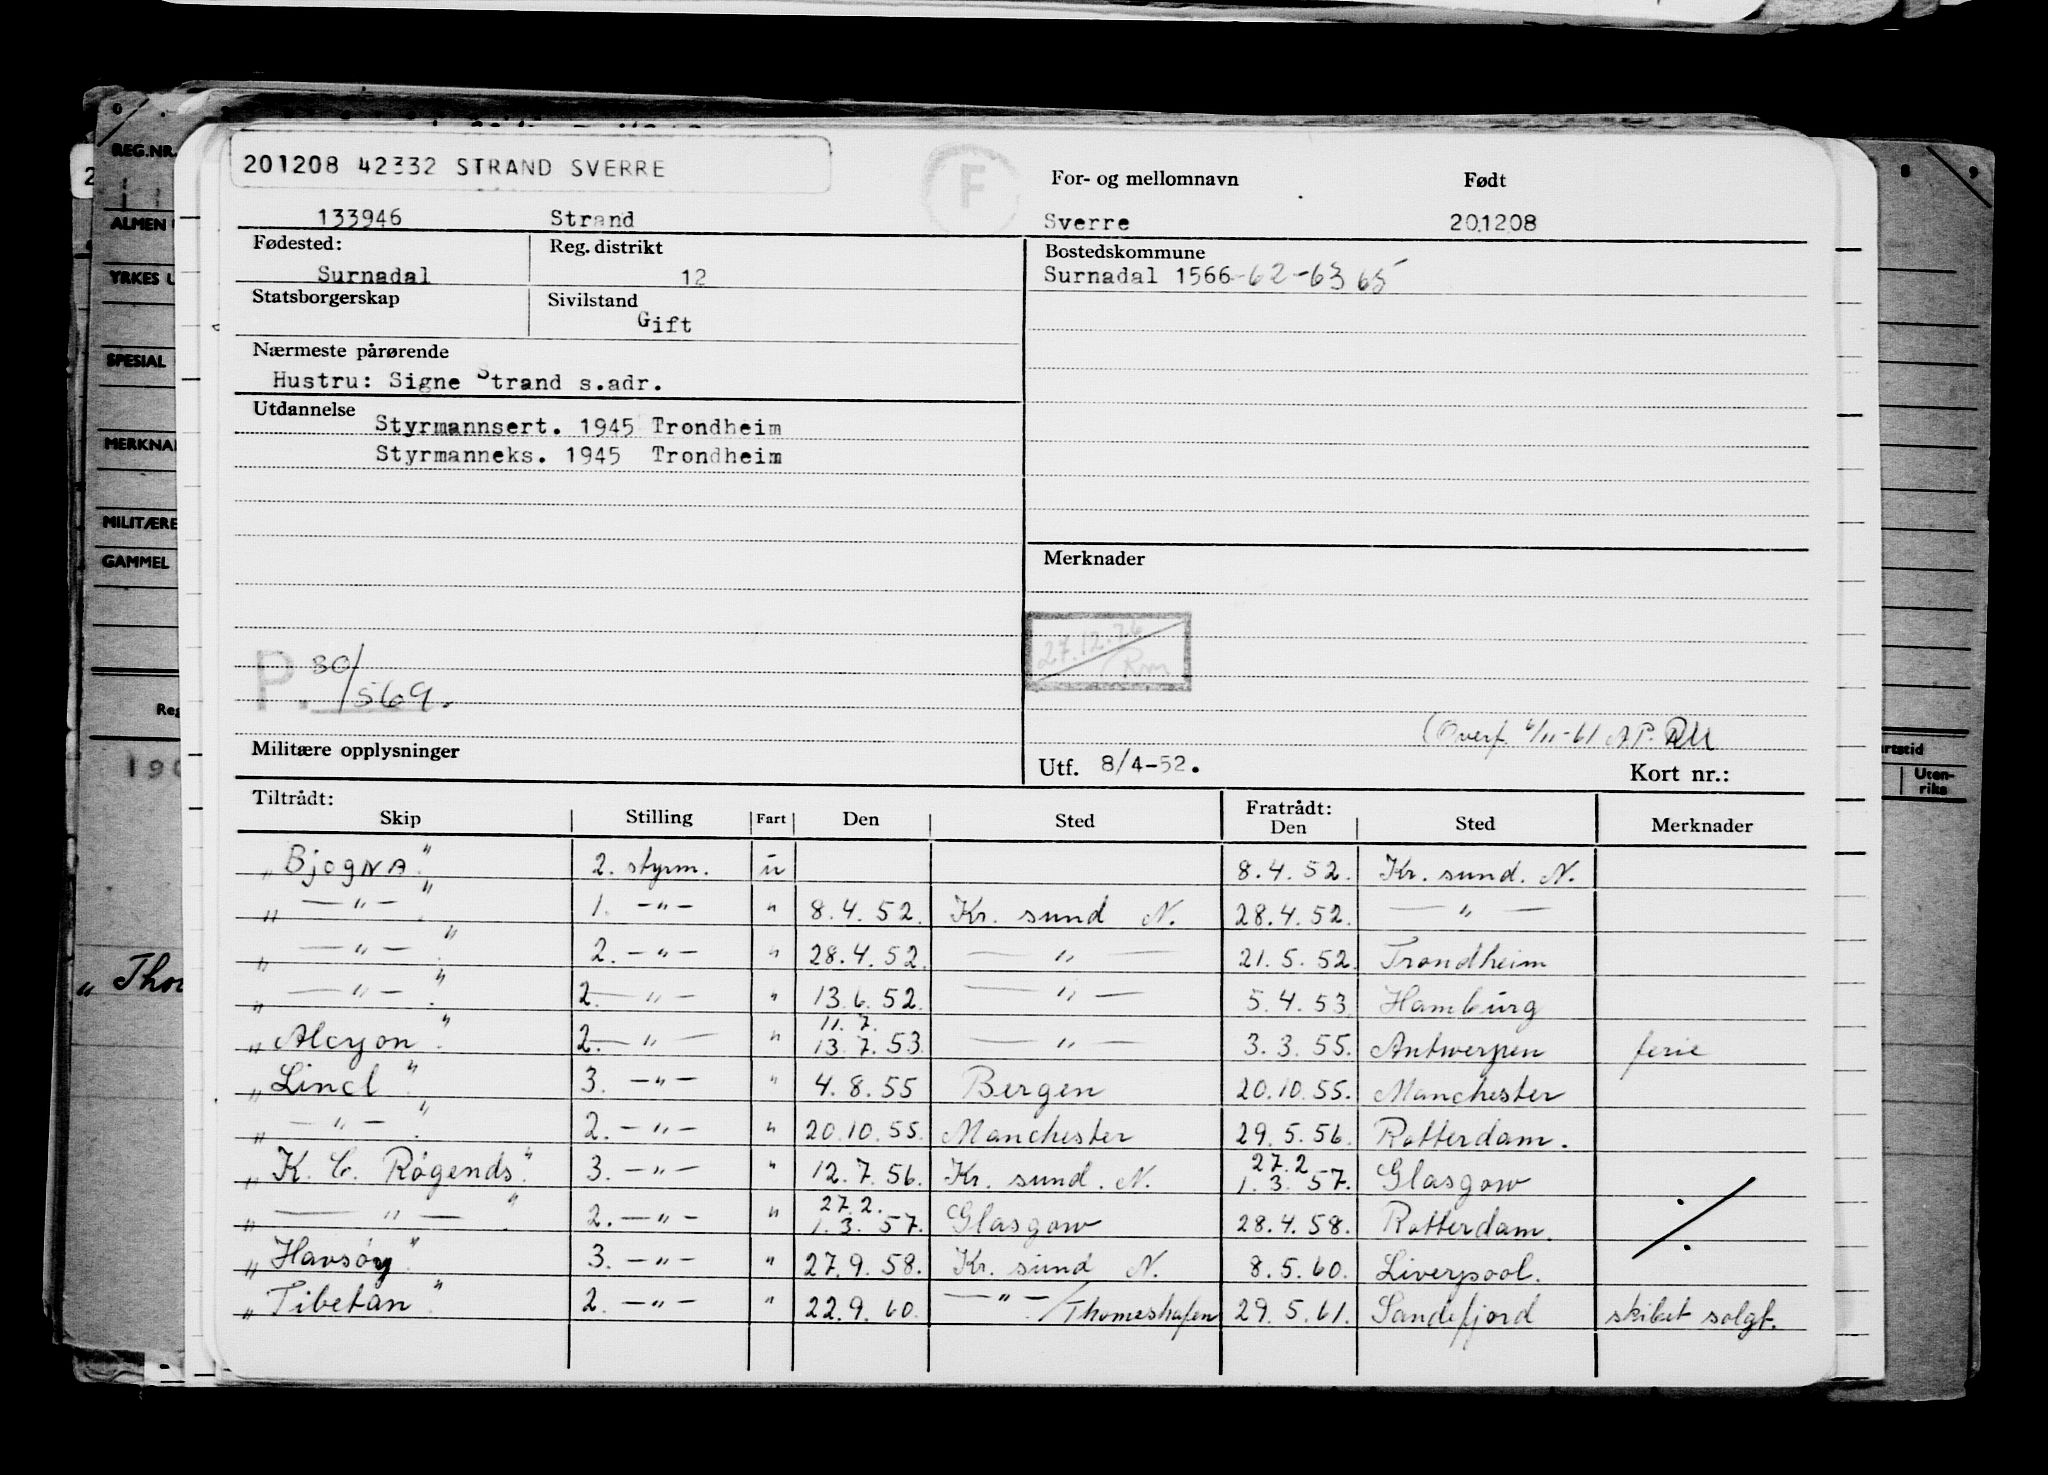 201208 42332 STRAND SVERRE
F
For- og mellomnavn Født
133946 Strand Sverre 201208
Fødested: Reg. distrikt Bostedskommune
Surnadal 12 Surnadal 1566-62-63 65
Statsborgerskap Sivilstand
Gift
Nærmeste pårørende
Hustru: Signe Strand s.adr.
Utdannelse
Styrmannsert. 1945 Trondheim
Styrmanneks. 1945 Trondheim
Merknader
27.12.76
P. 30/569.
(Overf. 6/11-61 AP.
Militære opplysninger Utf. 8/4-52. Kort nr.:
Tiltrådt: Fratrådt:
Skip Stilling Fart Den Sted Den Sted Merknader
„Bjogna“ 2. styrm. u 8.4.52. Kr. sund. N.
„—"—“ 1. -"- " 8.4.52. Kr. sund N. 28.4.52. —"—
„—"—“ 2. -"- " 28.4.52. —"— 21.5.52. Trondheim
„—"—“ 2. —"— " 13.6.52. —"— 5.4.53 Hamburg
11.7.
„Alcyon“ 2. —"— " 13.7.53. —"— 3.3.55. Antwerpen ferie
„Lincl“ 3. -"- " 4.8.55 Bergen 20.10.55. Manchester
„—"—“ 2. -"- " 20.10.55. Manchester 29.5.56. Rotterdam.
27.2
„K. C. Rogends“ 3. -"- " 12.7.56. Kr. sund. N. 1.3.57. Glasgow
27.2.
„—"—“ 2. -"- " 1.3.57. Glasgow 28.4.58. Rotterdam.
„Havsøy“ 3. -"- " 27.9.58. Kr. sund N. 8.5.60. Liverpool.
„Tibetan“ 2. -"- " 22.9.60. —"—/Thomeshafen 29.5.61. Sandefjord skibet solgt.
REG.NR.
ALMEN
YRKES U
SPESIAL
MERKNA
MILITÆRE
GAMMEL
Reg
190
„Thor
8 9
artstid
Uten-
riks